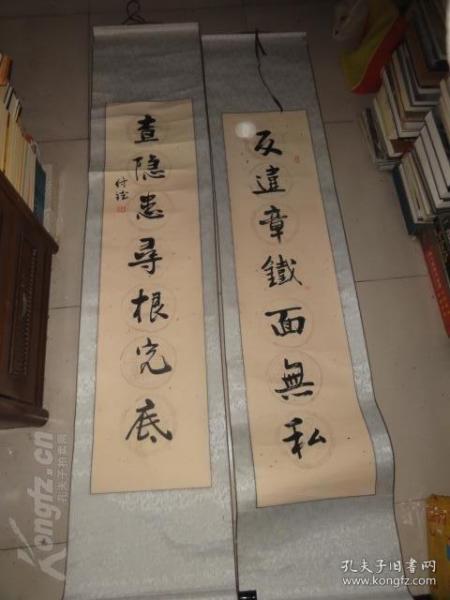 反違章鐵面無私
查隐患尋根究底
Kongfz.cn
孔夫子拍卖网
孔夫子旧书网
www.kongfz.com